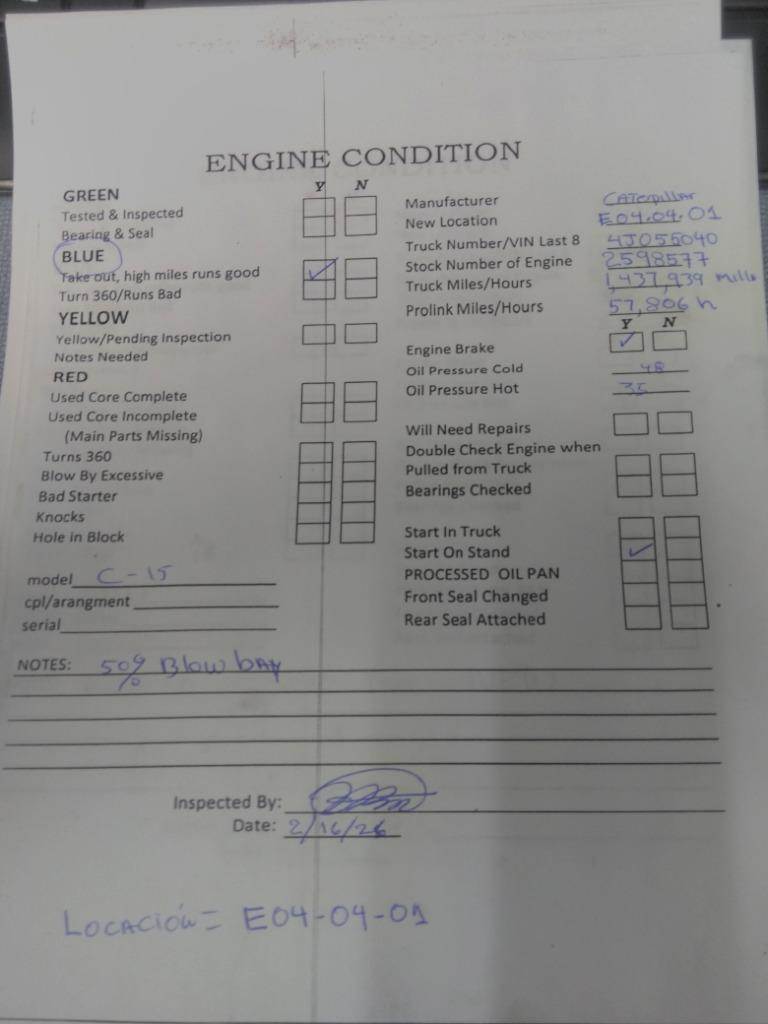 ENGINE CONDITION
Y N
GREEN
Tested & Inspected
Bearing & Seal
BLUE
Take out, high miles runs good
Turn 360/Runs Bad
YELLOW
Yellow/Pending Inspection
Notes Needed
RED
Used Core Complete
Used Core Incomplete
(Main Parts Missing)
Turns 360
Blow By Excessive
Bad Starter
Knocks
Hole in Block
model C-15
cpl/arangment
serial
Manufacturer CATerpillar
New Location E04.04.01
Truck Number/VIN Last 8 4J055040
Stock Number of Engine 2598577
Truck Miles/Hours 1,437,939 mills
Prolink Miles/Hours 57,806 h
Y N
Engine Brake
Oil Pressure Cold 48
Oil Pressure Hot 35
Will Need Repairs
Double Check Engine when
Pulled from Truck
Bearings Checked
Start In Truck
Start On Stand
PROCESSED OIL PAN
Front Seal Changed
Rear Seal Attached
NOTES: 50% Blow bay
Inspected By:
Date: 2/16/26
LOCACIÓN = E04-04-01